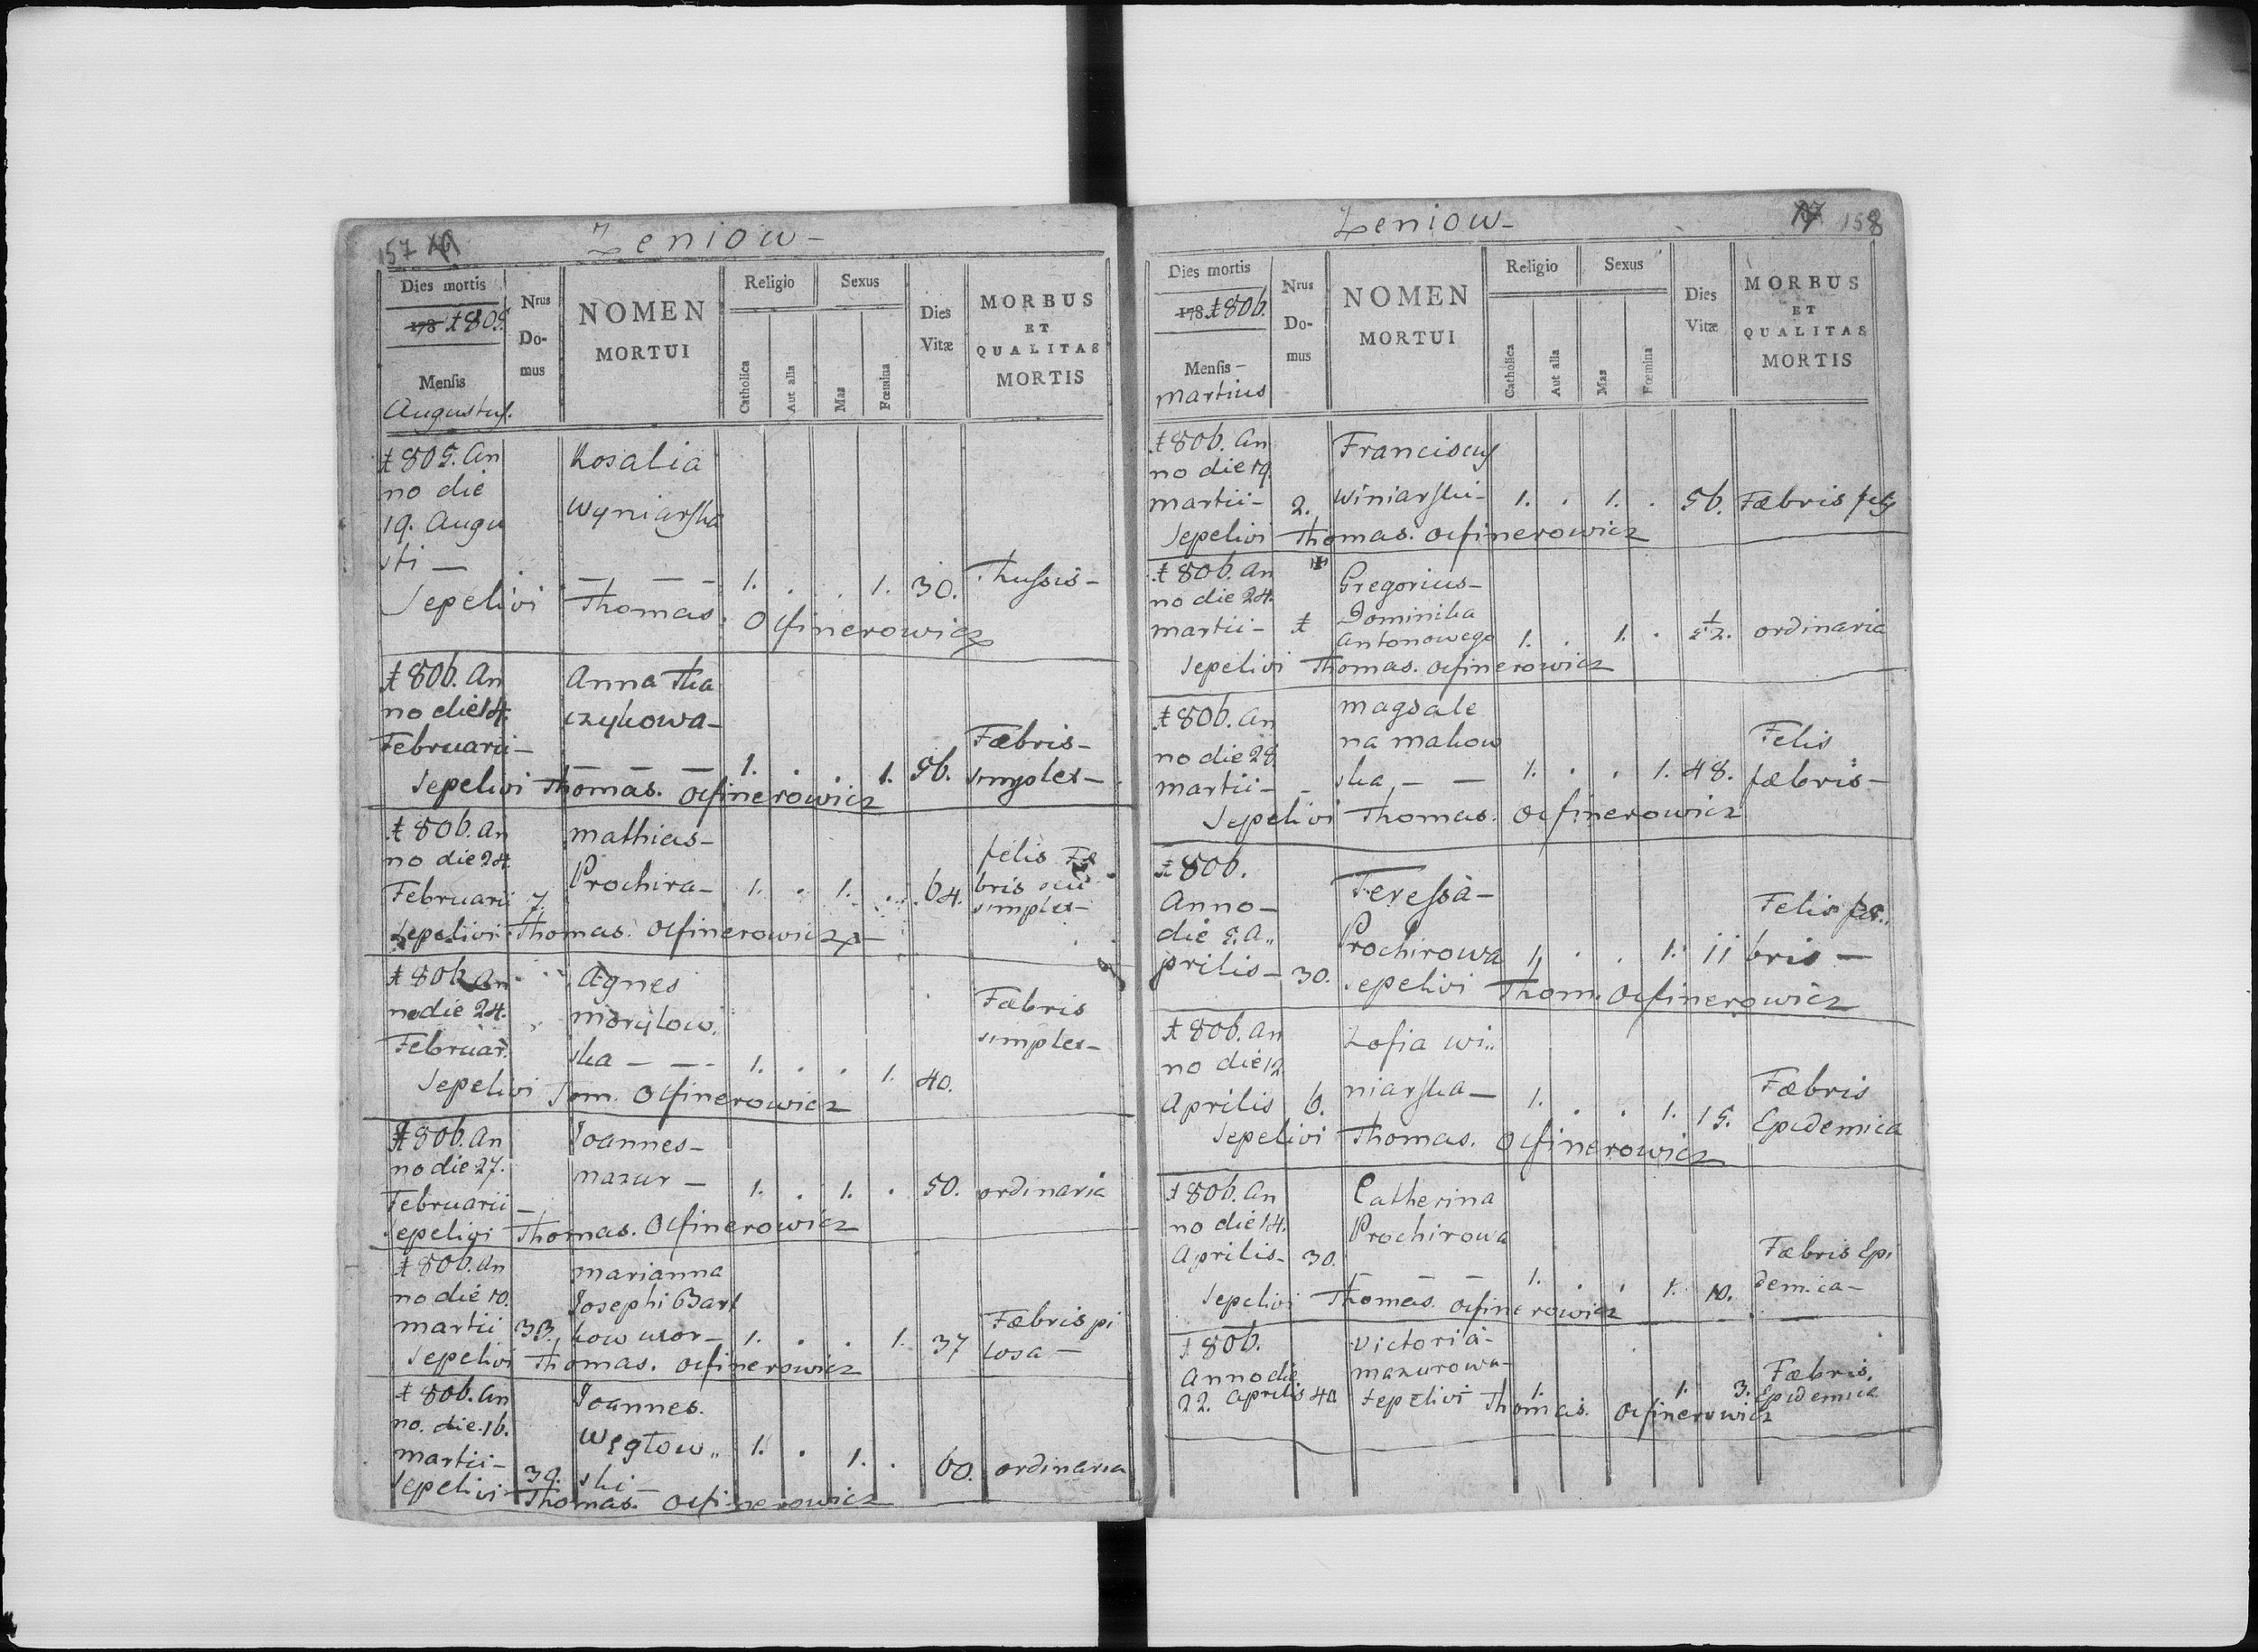 157
Zeniow -
Dies mortis
178 1805.
Mensis
Augustus.
Nrus
Do-
mus
NOMEN
MORTUI
Religio
Catholica
Aut alia
Sexus
Mas
Fœmina
Dies
Vitæ
MORBUS
ET
QUALITAS
MORTIS
1805. An
no die
19. Augu
sti —
Rosalia
Wyniarska
— — — 1. . . 1. 30. Thussis -
Sepelivi Thomas. Olfinerowicz
1806. An
no die 14.
Februarii —
Anna Tka
czykowa -
— — 1. . . 1. 56.
Fæbris -
simplex -
Sepelivi Thomas. Olfinerowicz
1806. An
no die 24.
Februarii 7.
Mathias -
Prochira - 1. . 1. . 64.
felis Fe
bris seu
simplex -
Sepelivi Thomas. Olfinerowicz
1806. An
no die 24.
Februar.
Agnes
Morylow.
ska — — 1. . . 1. 40.
Fæbris
simplex -
Sepelivi Tom. Olfinerowicz
1806. An
no die 27.
Februarii —
Joannes -
Mazur — 1. . 1. . 50. ordinaria
Sepelivi Thomas. Olfinerowicz
1806. An
no die 10.
Martii 33.
Marianna
Josephi Bart
kow uxor - 1. . . 1. 37
Fæbris pi
tosa —
Sepelivi Thomas. Olfinerowicz
1806. An
no. die. 16.
Martii -
39.
Joannes.
Węgłow„
ski — 1. . 1. . 60. ordinaria
Sepelivi Thomas. Olfinerowicz
158
Zeniow -
Dies mortis
178 1806.
Mensis -
Martius
Nrus
Do-
mus
NOMEN
MORTUI
Religio
Catholica
Aut alia
Sexus
Mas
Fœmina
Dies
Vitæ
MORBUS
ET
QUALITAS
MORTIS
1806. An
no die 19.
Martii - 2.
Franciscus
Winiarski - 1. . 1. . 56. Fæbris felis
Sepelivi Thomas. Olfinerowicz
1806. An
no die 24.
Martii - 1
Gregorius -
Dominika
Antonowego 1. . 1. . ordinaria
Sepelivi Thomas. Olfinerowicz
1806. An
no die 28.
Martii -
Magdale
na Makow
ska, — — 1. . . 1. 48.
Felis
fæbris -
Sepelivi Thomas. Olfinerowicz
1806.
Anno -
die 5. A„
prilis - 30.
Teressa -
Prochirowa 1. . . 1. 11
Felis fæ„
bris —
Sepelivi Thom. Olfinerowicz
1806. An
no die 12
Aprilis 6.
Zofia Wi„
niarska — 1. . . 1. 15.
Fæbris
Epidemica
Sepelivi Thomas. Olfinerowicz
1806. An
no die 14.
Aprilis - 30.
Catherina
Prochirowa
— — — 1. . . 1. 10.
Fæbris Epi
demica -
Sepelivi Thomas. Olfinerowicz
1806.
Anno die
22. Aprilis 40.
Victoria -
Mazurowa -
1. 1. 3.
Fæbris.
Epidemica
Sepelivi Thomas. Olfinerowicz